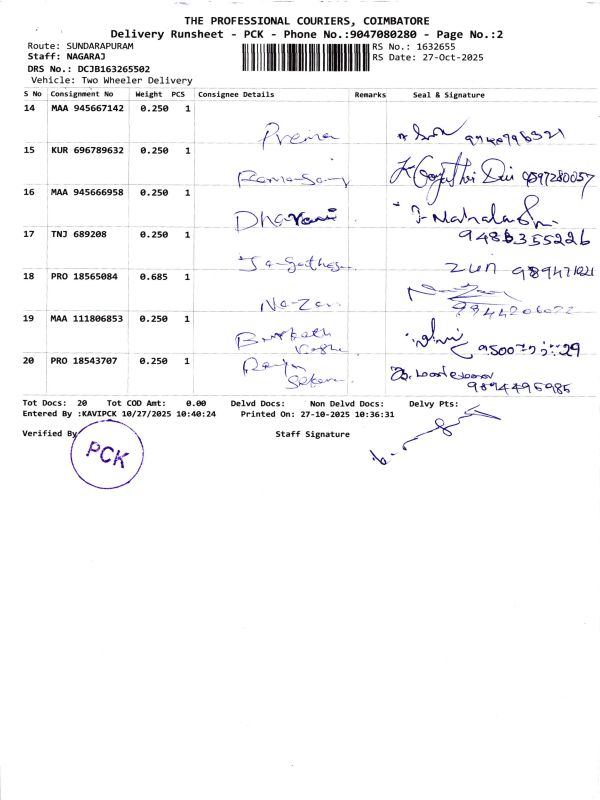 THE PROFESSIONAL COURIERS, COIMBATORE
Delivery Runsheet - PCK - Phone No.:9047080280 - Page No.:2
Route: SUNDARAPURAM
RS No.: 1632655
Staff: NAGARAJ
RS Date: 27-Oct-2025
DRS No.: DCJB163265502
Vehicle: Two Wheeler Delivery
S No Consignment No Weight PCS Consignee Details Remarks Seal & Signature
14 MAA 945667142 0.250 1
Prema 9940796321
15 KUR 696789632 0.250 1
9597280057
16 MAA 945666958 0.250 1
Dharani
17 TNJ 689208 0.250 1
9486355226
18 PRO 18565084 0.685 1
19 MAA 111806853 0.250 1
20 PRO 18543707 0.250 1
9894495985
Tot Docs: 20 Tot COD Amt: 0.00 Delvd Docs: Non Delvd Docs: Delvy Pts:
Entered By :KAVIPCK 10/27/2025 10:40:24 Printed On: 27-10-2025 10:36:31
Verified By Staff Signature
PCK